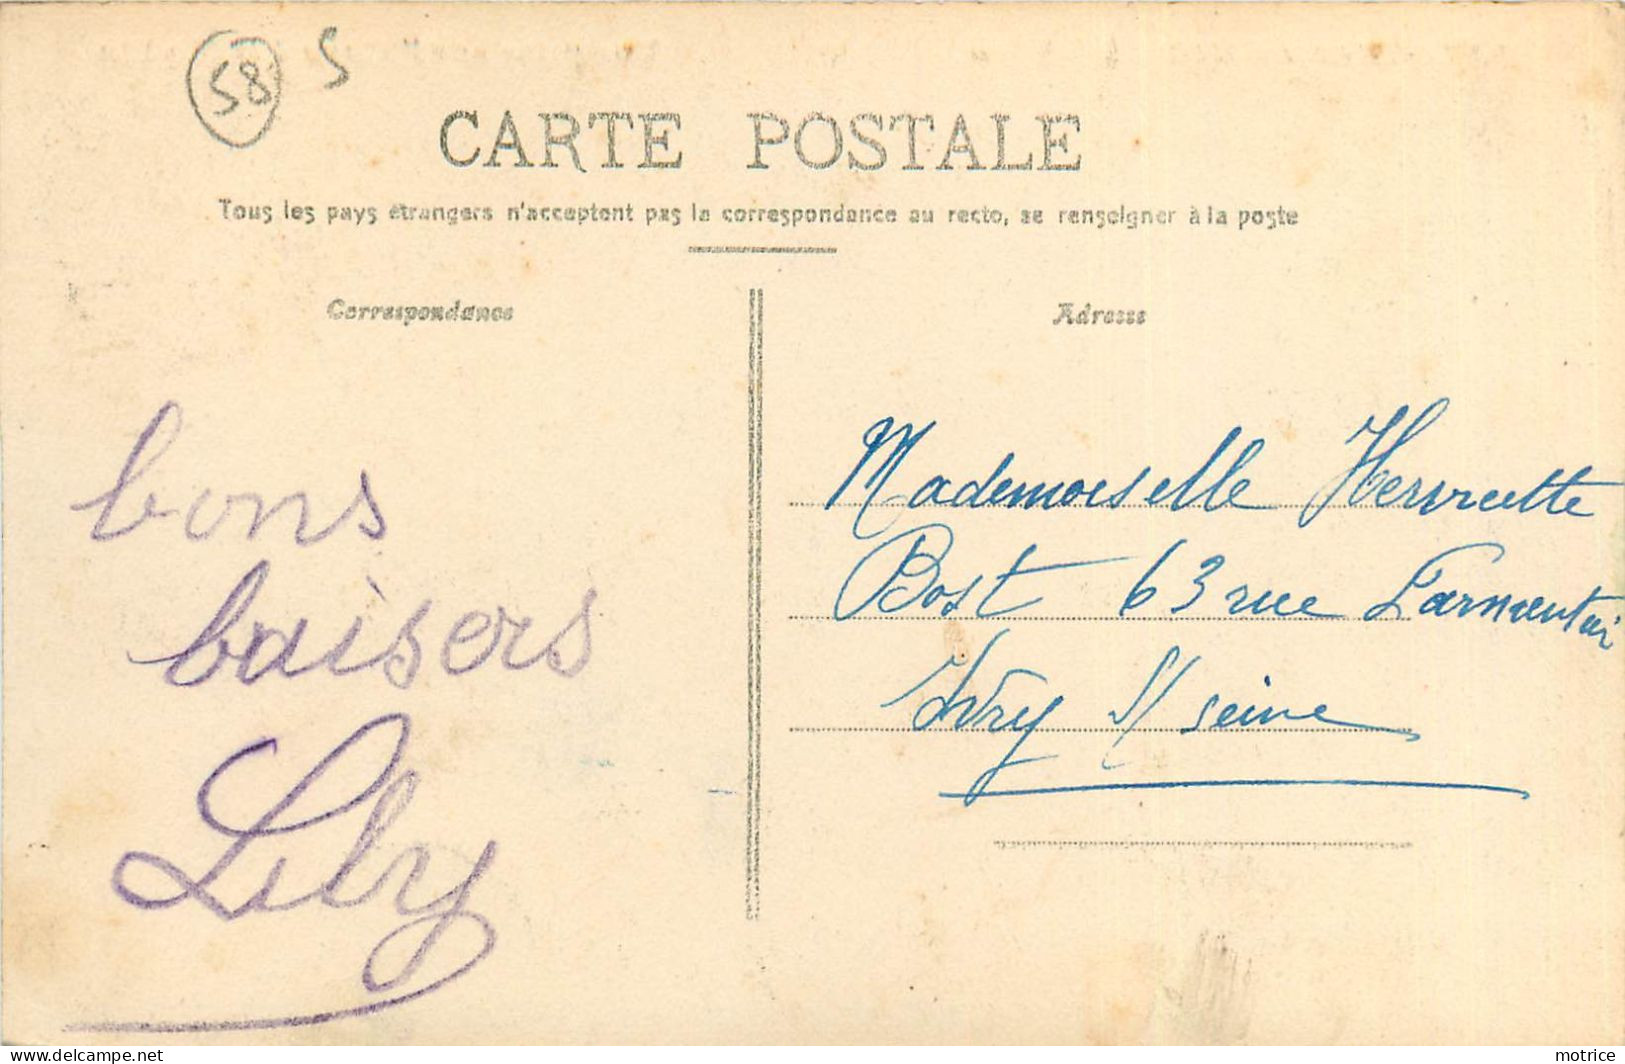 58 S
CARTE POSTALE
Tous les pays étrangers n'acceptent pas la correspondance au recto, se renseigner à la poste
Correspondance
Adresse
bons
baisers
Lily
Mademoiselle Henriette
Bost 63 rue Parmentier
Ivry s/ seine
motrice